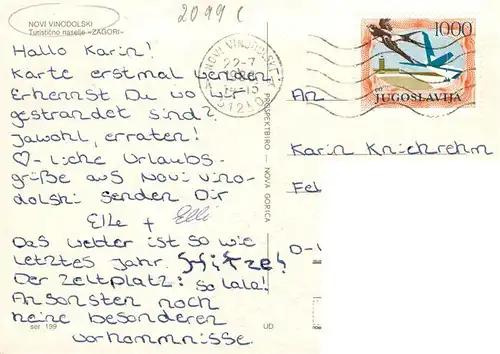 2099 (
NOVI VINODOLSKI
Turistično naselje »ZAGORI«
Hallo Karin!
Karte erstmal wenden.
Erkennst Du wo wir
gestrandet sind?
Jawohl, erraten!
♡-liche Urlaubs-
grüße aus Novi vino-
dolski senden Dir
Elle + Elli
Das Wetter ist so wie
letztes Jahr, Spitze!
Der Zeltplatz: so lala!
Ansonsten noch
keine besonderen
Vorkommnisse.
ser 199
UD
PROSPEKTBIRO — NOVA GORICA
NOVI VINODOLSKI
22-7
51250
1000
JUGOSLAVIJA
An
Karin Knickrehm
Fel
D-